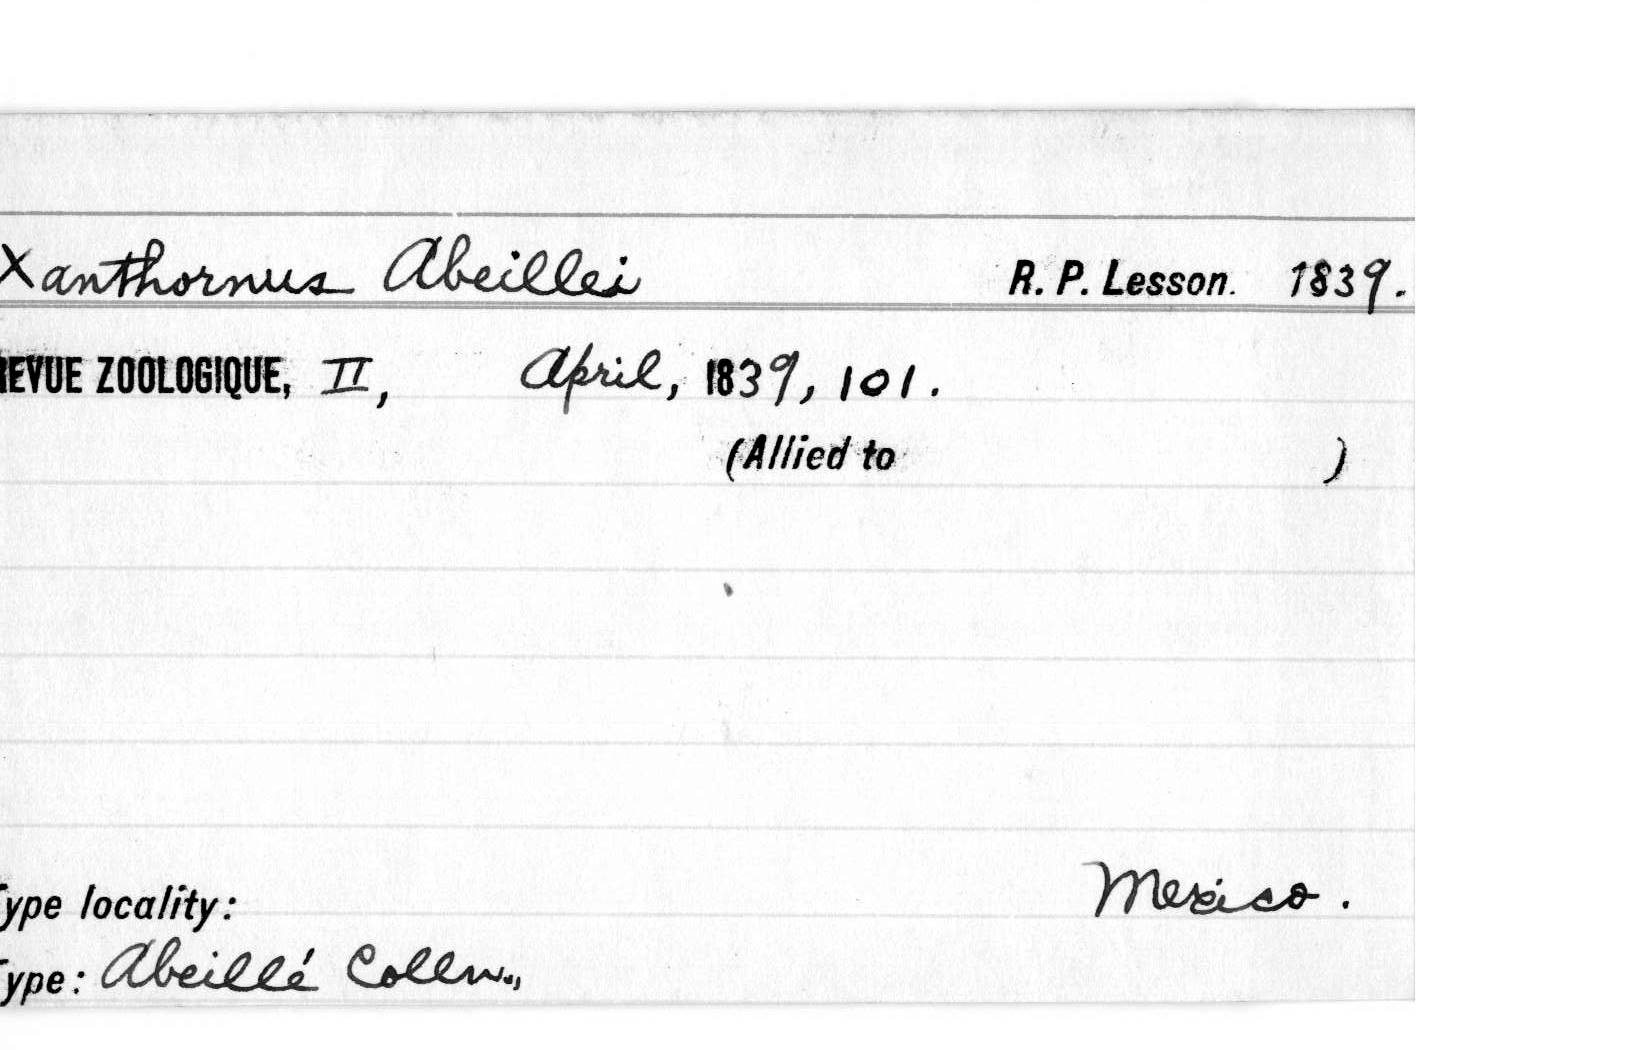 Xanthornus Abeillei R. P. Lesson. 1839.
REVUE ZOOLOGIQUE, II, April, 1839, 101.
(Allied to )
Type locality: Mexico.
Type: Abeillé Colln.,